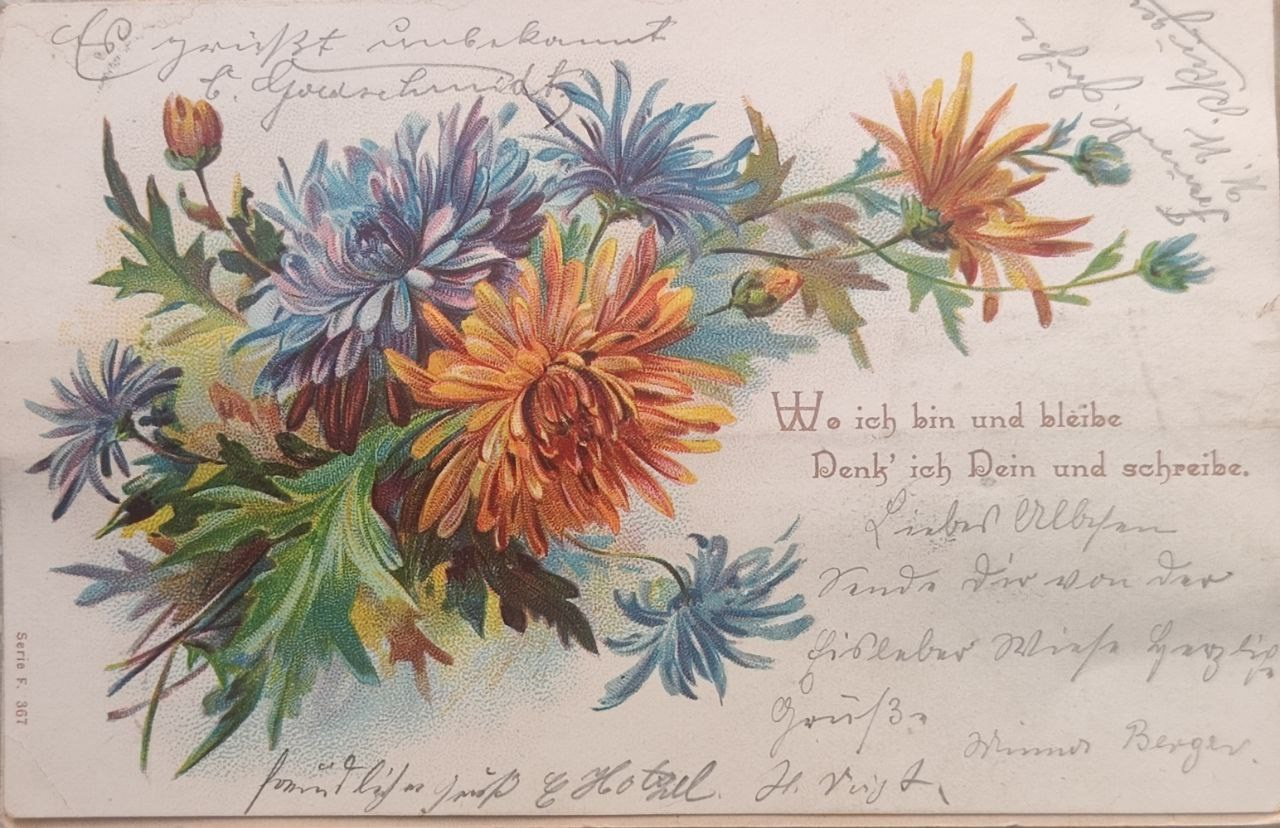 Es grüßt unbekannt
C. Goldschmidt
Wo ich bin und bleibe
Denk' ich Dein und schreibe.
Liebes Albchen
Sende Dir von der
Eisleber Wiese Herzliche
Grüße
Minna Berger.
freundlichen Gruß E Hotzel. H. Voigt.
Serie F. 367